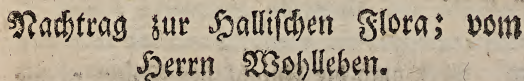 Nachtrag zur Hallischen Flora; vom
Herrn Wohlleben.